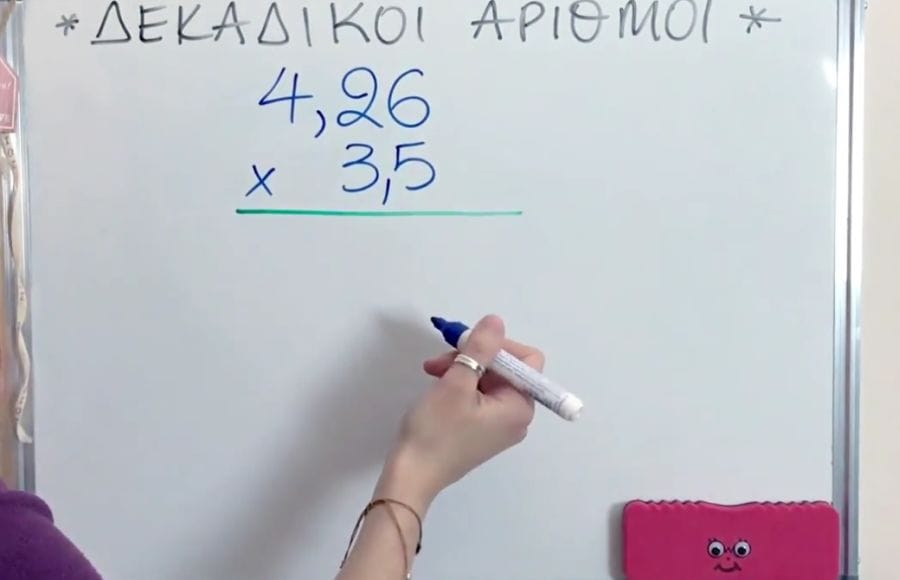 * ΔΕΚΑΔΙΚΟΙ ΑΡΙΘΜΟΙ *
4,26
x 3,5